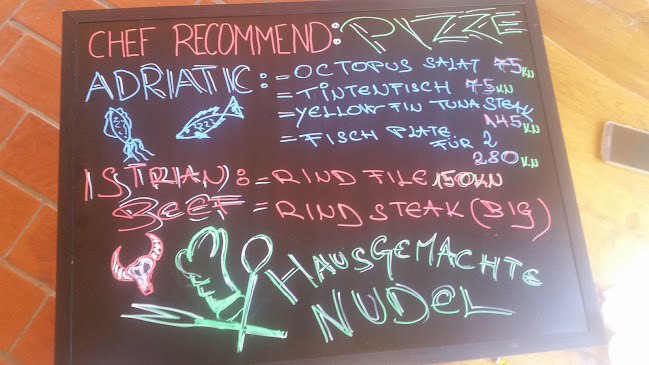 CHEF RECOMMEND: PIZZE
ADRIATIC: = OCTOPUS SALAT 75 KN
= TINTENFISCH 75 KN
= YELLOW FIN TUNA STEAK
145 KN
= FISCH PLATE
FÜR 2
280 KN
ISTRIAN: = RIND FILE 150KN
BEEF = RIND STEAK (BIG)
HAUSGEMACHTE
NUDEL